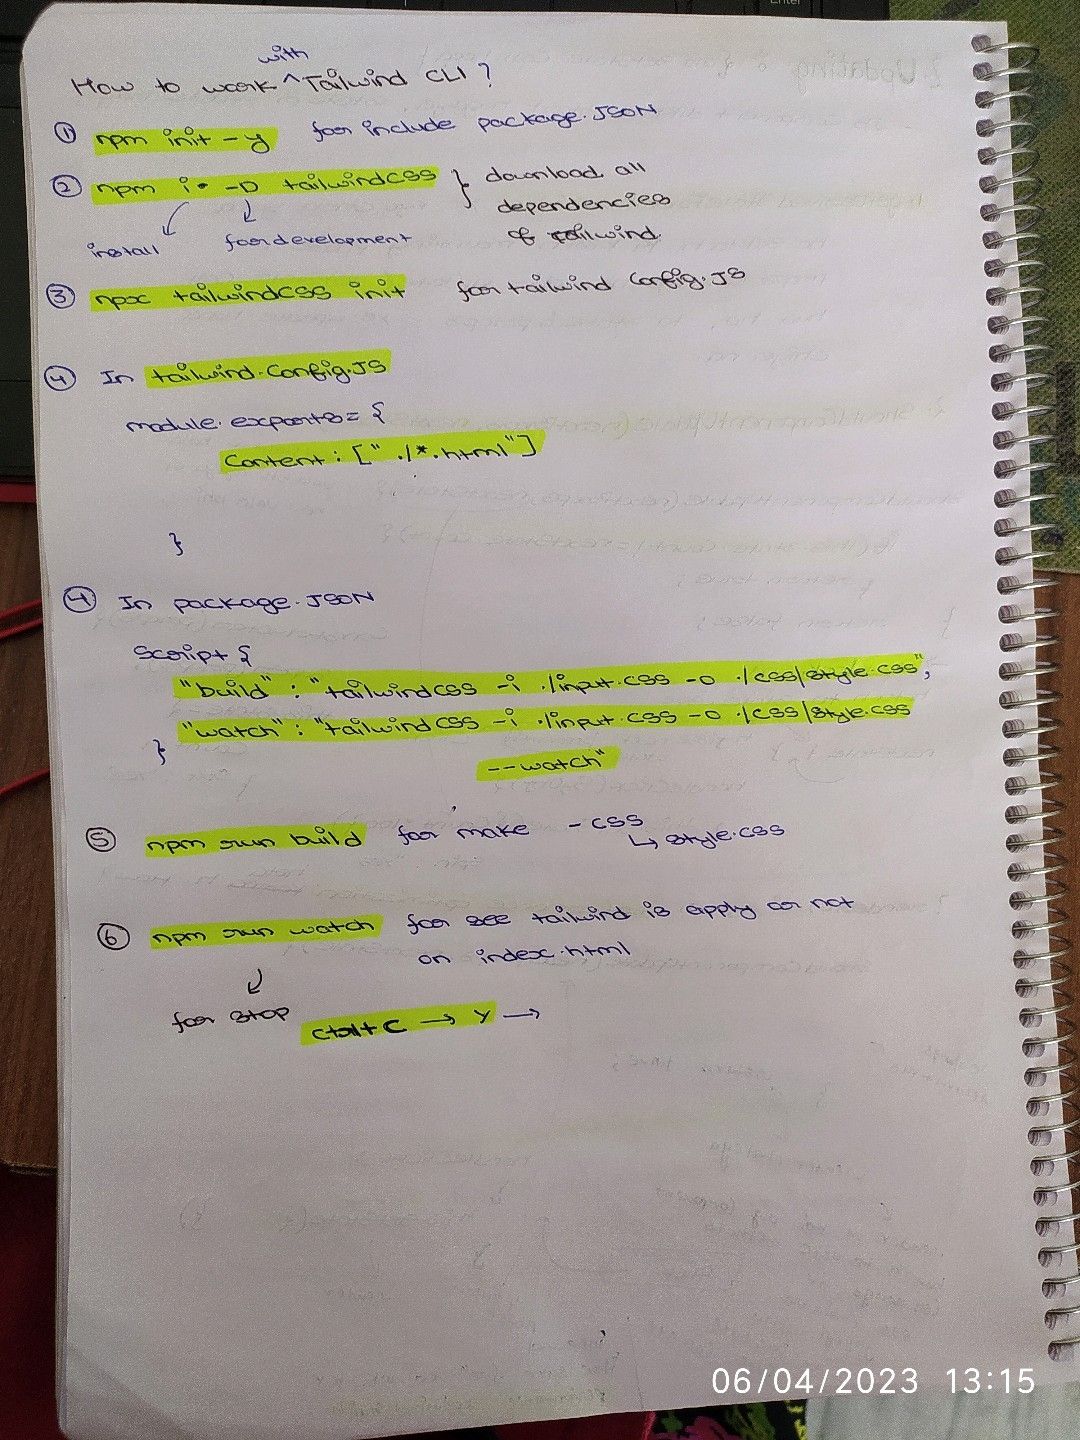 with
How to work ^ Tailwind CLI ?
① npm init -y for include package.JSON
② npm i -D tailwindcss } download all
dependencies
of tailwind
install for development
③ npx tailwindcss init for tailwind config.JS
④ In tailwind.config.JS
module.exports = {
Content : [" ./*.html"]
}
④ In package.JSON
Script {
"build" : "tailwindcss -i ./input.css -o ./css/style.css",
"watch" : "tailwindcss -i ./input.css -o ./css/style.css
} --watch"
⑤ npm run build for make - css
↳ style.css
⑥ npm run watch for see tailwind is apply or not
on index.html
for stop ctrl+C → Y →
06/04/2023 13:15